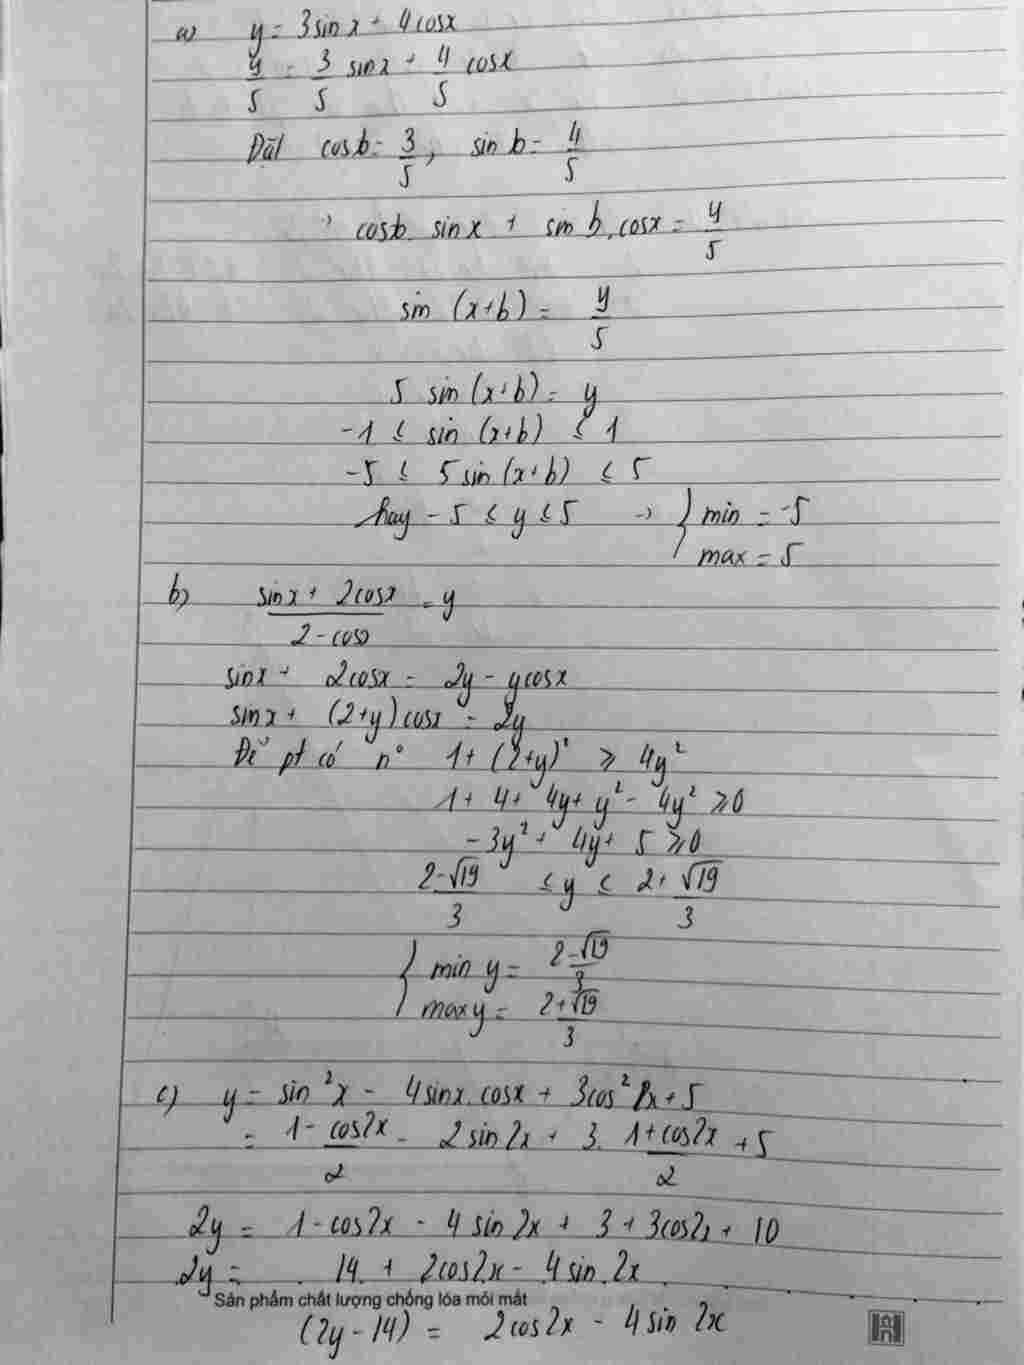 a) y = 3sinx + 4cosx
y/5 = 3/5 sinx + 4/5 cosx
Đặt cosb = 3/5, sin b = 4/5
→ cosb. sinx + sin b. cosx = y/5
sin (x+b) = y/5
5 sin (x+b) = y
-1 ≤ sin (x+b) ≤ 1
-5 ≤ 5 sin (x+b) ≤ 5
hay -5 ≤ y ≤ 5 → { min = -5
max = 5
b) (sinx + 2cosx)/(2 - cosx) = y
sinx + 2cosx = 2y - ycosx
sinx + (2+y) cosx = 2y
Để pt có n° 1 + (2+y)² ≥ 4y²
1 + 4 + 4y + y² - 4y² ≥ 0
-3y² + 4y + 5 ≥ 0
(2-√19)/3 ≤ y ≤ (2+√19)/3
{ min y = (2-√19)/3
max y = (2+√19)/3
c) y = sin²x - 4sinx.cosx + 3cos²x + 5
= (1 - cos2x)/2 - 2sin2x + 3. (1+cos2x)/2 + 5
2y = 1 - cos2x - 4 sin 2x + 3 + 3cos2x + 10
2y = 14 + 2cos2x - 4 sin 2x
Sản phẩm chất lượng chống lóa mỏi mắt
(2y - 14) = 2cos2x - 4 sin 2x